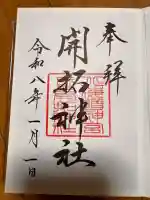 奉拝
開拓神社
令和八年一月一日